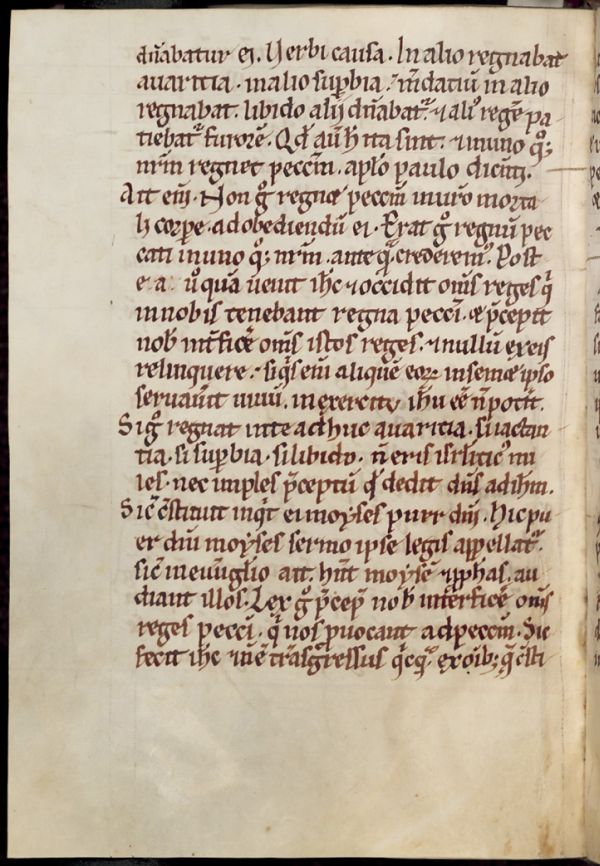 dn̄abatur ei. Verbi causa. In alio regnabat
auaritia. in alio sup̄bia. m̄datiū in alio
regnabat. libido alij dn̄abat᷑. ⁊ alių regē pa
tiebat᷑ furorē. Qđ aū h̄ ita sint. ⁊ in uno q̊ꝫ
nr̄m regnet peccm̄. apl̄o paulo dicim᷒.
Ait em̄. Non g̊ regnet peccm̄ in ur̄o morta
li corpe. ad obediendū ei. Erat g̊ regnū pec
cati in uno q̊ꝫ nr̄m. ante q̄ crederem᷒. Post
ea ů quā uenit ih̄c ⁊ occidit om̄s reges q̄
in nobis tenebant regna pecci. et p̄cepit
nob̄ int̄ficē om̄s istos reges. ⁊ nullū ex eis
relinquere. siq̄s em̄ aliquē eoꝝ in semet ipso
seruauīt uiuū. in exercitu ih̄u eē n̄ pot̄it.
Si g̊ regnat in te adhuc auaritia. si iactan
tia. si sup̄bia. si libido. n̄ eris isrl̄itic᷒ mi
les. nec imples p̄ceptū qđ dedit dn̄s ad ih̄m.
Sic̄ c̄stituit inq̄t ei moyses puer dn̄i. Hic pu
er dn̄i moyses sermo ipse legis appellat᷑.
sic̄ in euu̅glio ait. hn̄t moysē ⁊ pphas. au
diant illos. Lex g̊ p̄cep̄ nob̄ interficē om̄s
reges pecci. q̄ nos p̄uocant ad peccm̄. Sic
fecit ih̄c ⁊ n̄ ē tr̄asgressus q̄cq̄ ex oīb; q̄ c̄sti